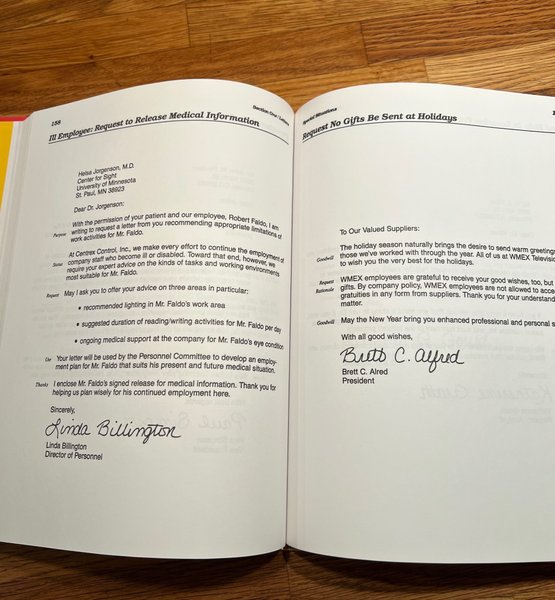 158
Section One / Letters
Ill Employee: Request to Release Medical Information
Helsa Jorgenson, M.D.
Center for Sight
University of Minnesota
St. Paul, MN 38923
Dear Dr. Jorgenson:
Purpose With the permission of your patient and our employee, Robert Faldo, I am
writing to request a letter from you recommending appropriate limitations of
work activities for Mr. Faldo.
Status At Centrex Control, Inc., we make every effort to continue the employment of
company staff who become ill or disabled. Toward that end, however, we
require your expert advice on the kinds of tasks and working environments
most suitable for Mr. Faldo.
Request May I ask you to offer your advice on three areas in particular:
• recommended lighting in Mr. Faldo's work area
• suggested duration of reading/writing activities for Mr. Faldo per day
• ongoing medical support at the company for Mr. Faldo's eye condition
Use Your letter will be used by the Personnel Committee to develop an employ-
ment plan for Mr. Faldo that suits his present and future medical situation.
Thanks I enclose Mr. Faldo's signed release for medical information. Thank you for
helping us plan wisely for his continued employment here.
Sincerely,
Linda Billington
Linda Billington
Director of Personnel
Special Situations
Request No Gifts Be Sent at Holidays
To Our Valued Suppliers:
Goodwill The holiday season naturally brings the desire to send warm greetings
those we've worked with through the year. All of us at WMEX Televisio
to wish you the very best for the holidays.
Request WMEX employees are grateful to receive your good wishes, too, but
Rationale gifts. By company policy, WMEX employees are not allowed to acce
gratuities in any form from suppliers. Thank you for your understand
matter.
Goodwill May the New Year bring you enhanced professional and personal s
With all good wishes,
Brett C. Alred
Brett C. Alred
President